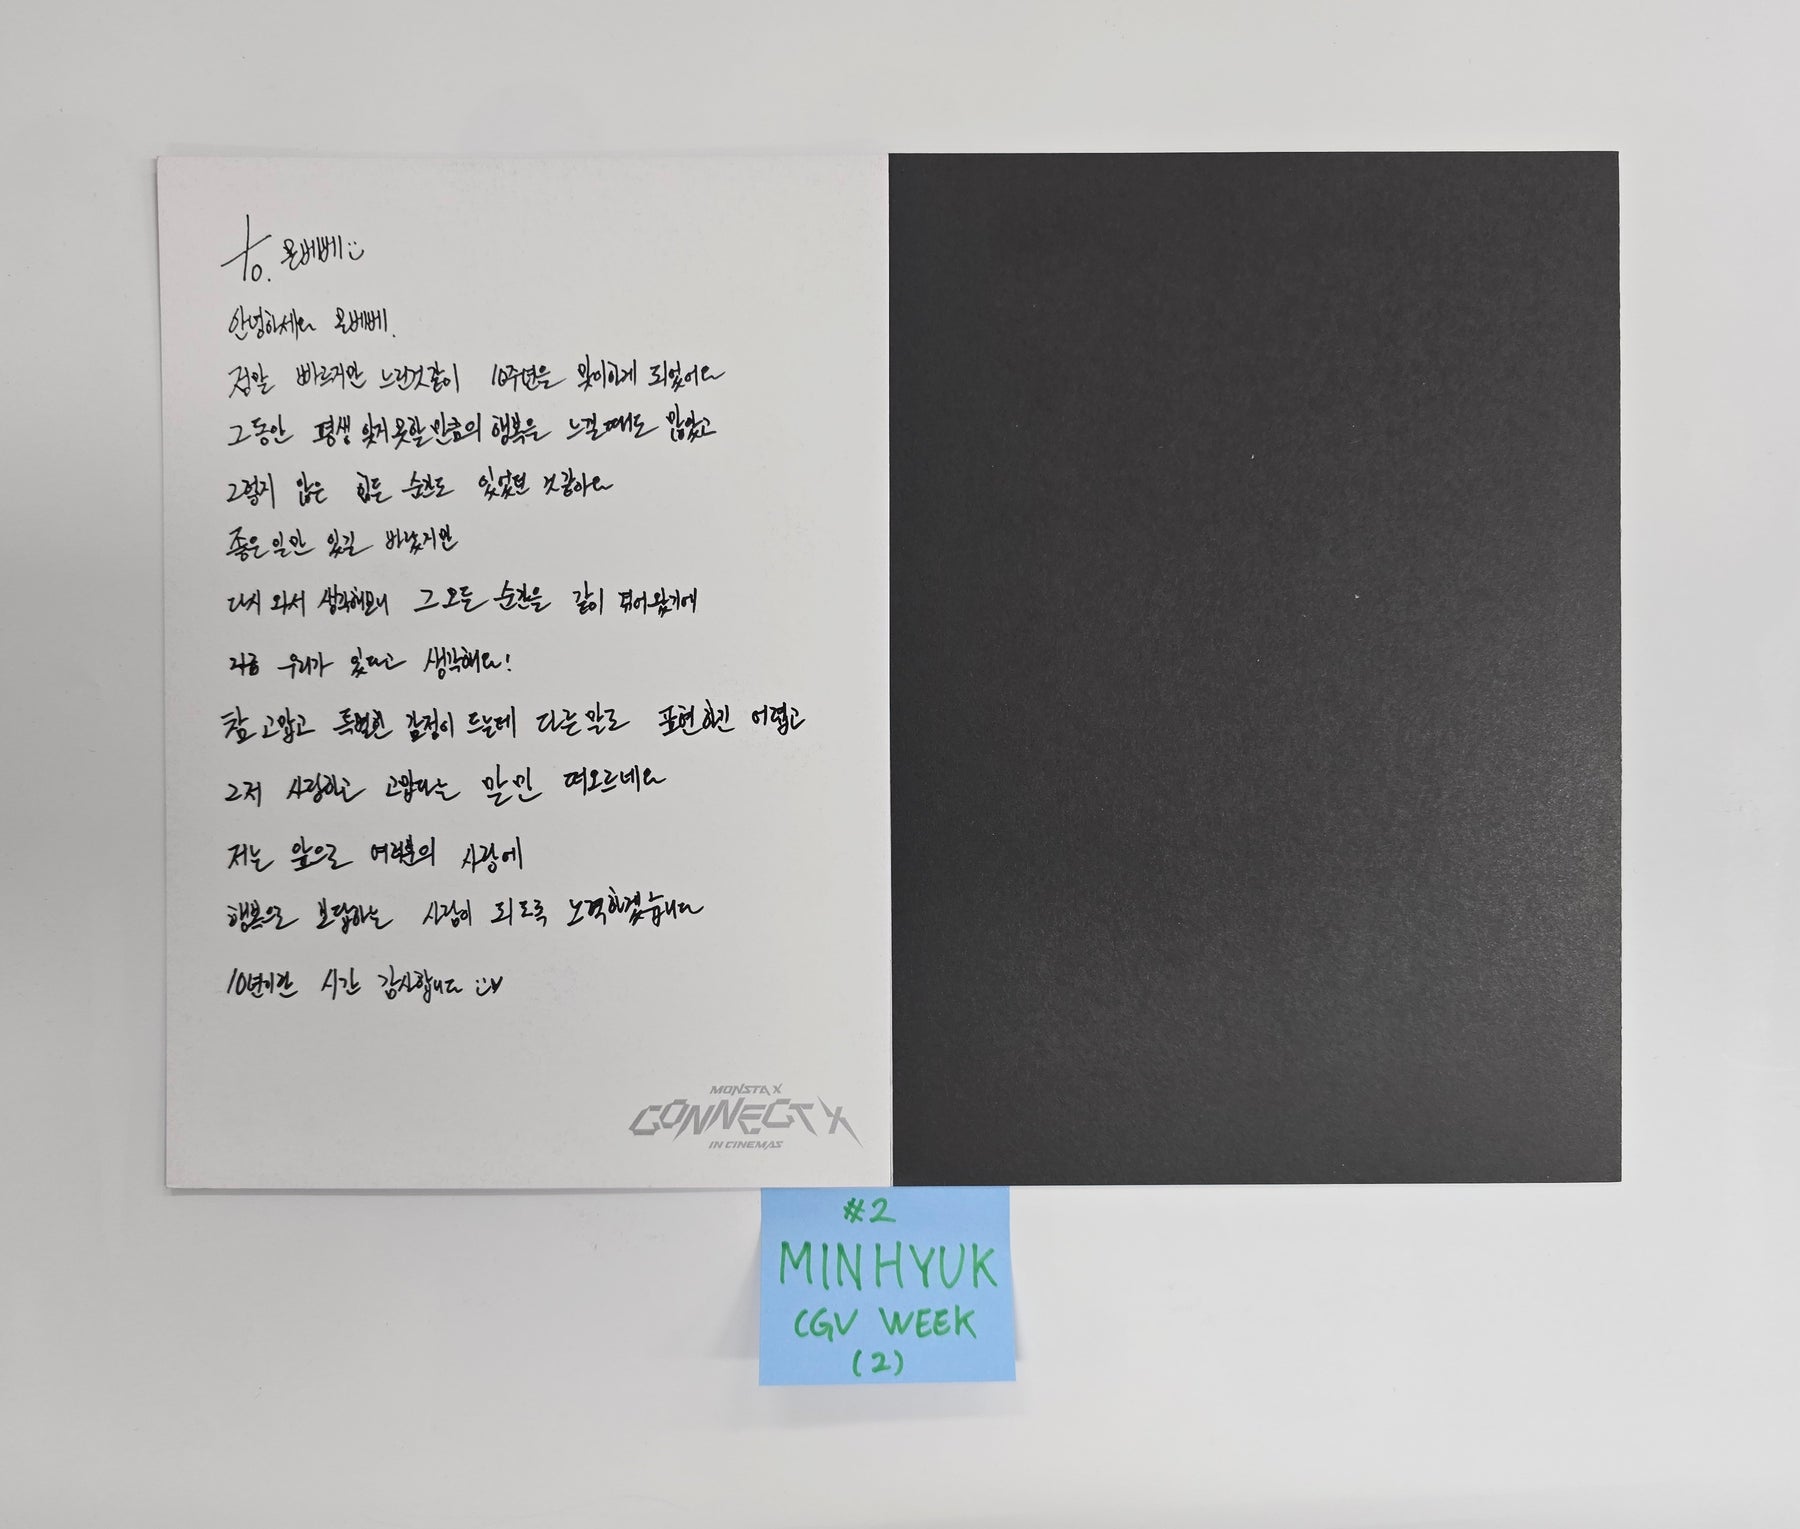 to. 몬베베:)
안녕하세요 몬베베.
정말 빠르지만 느린것같이 10주년을 맞이하게 되었어요
그동안 평생 잊지못할만큼의 행복을 느낄때도 많았고
그렇지 않은 힘든 순간도 있었던 것 같아요
좋은일만 있길 바랐지만
다시 와서 생각해보니 그 모든 순간을 같이 겪어왔기에
지금 우리가 있다고 생각해요!
참 고맙고 특별한 감정이 드는데 다른말로 표현하긴 어렵고
그저 사랑하고 고맙다는 말만 떠오르네요
저는 앞으로 여러분의 사랑에
행복으로 보답하는 사람이 되도록 노력하겠습니다
10년이란 시간 감사합니다 :)♥
MONSTA X
CONNECT X
IN CINEMAS
#2
MINHYUK
CGV WEEK
(2)